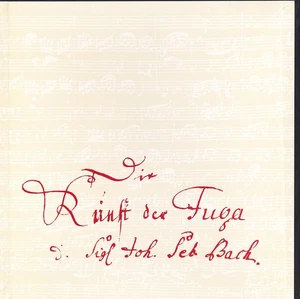 Die
Kunst der Fuga
d. Sigl Joh. Seb. Bach.